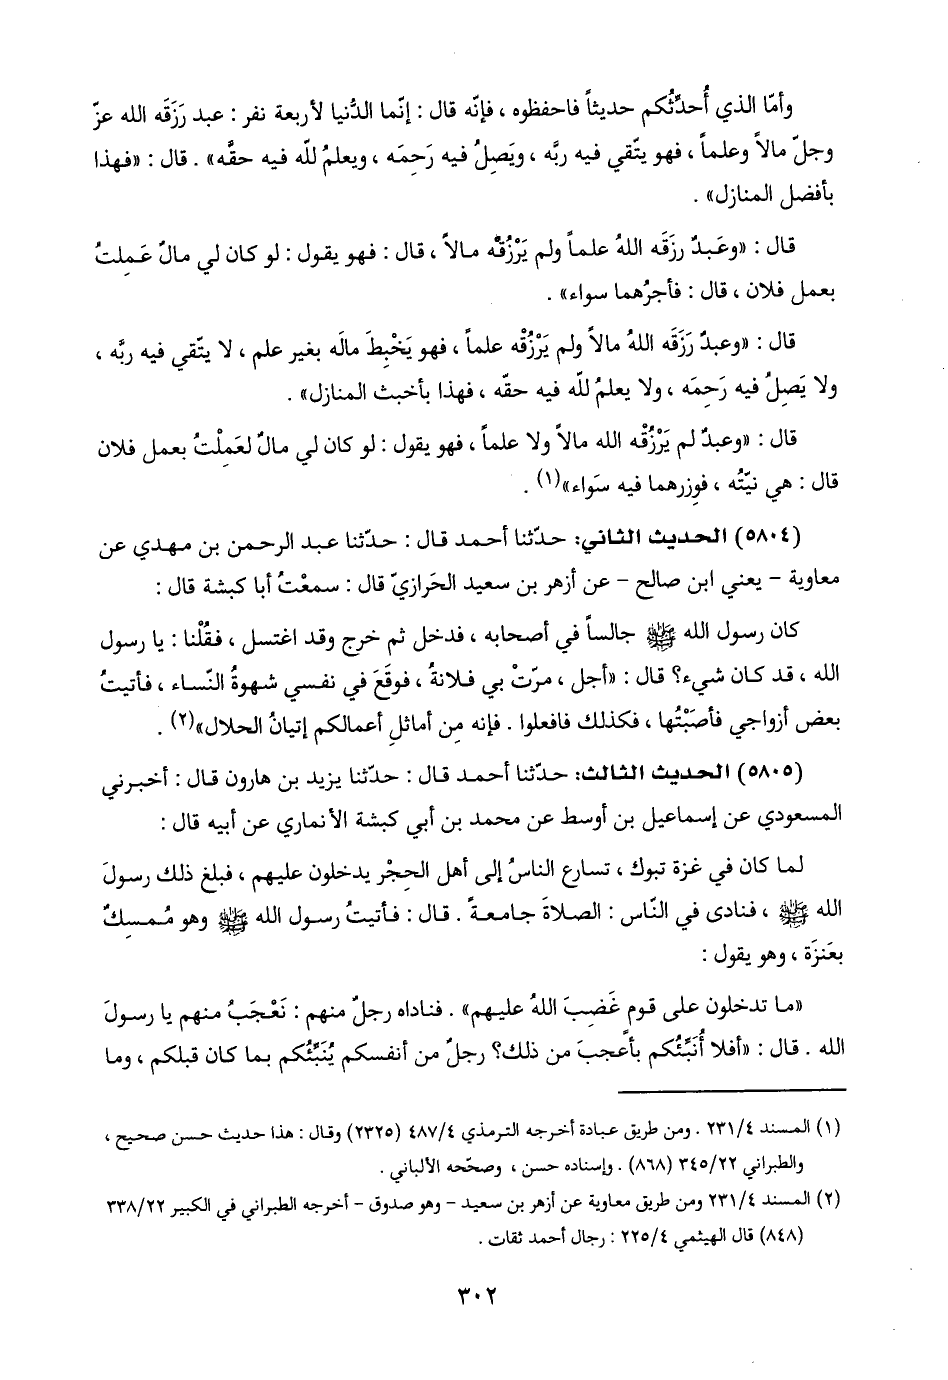 وأمّا الذي أُحدِّثُكم حديثاً فاحفظوه ، فإنّه قال : إنّما الدُّنيا لأربعة نفر : عبد رَزَقَه الله عزّ
وجلّ مالاً وعلماً ، فهو يتّقي فيه ربَّه ، ويَصِلُ فيه رَحِمَه ، ويعلمُ للّه فيه حقَّه» . قال : «فهذا
بأفضل المنازل» .
قال : «وعَبدٌ رزَقَه اللهُ علماً ولم يَرْزُقْه مالاً ، قال : فهو يقول : لو كان لي مالٌ عَمِلتُ
بعمل فلان ، قال : فأجرُهما سواء» .
قال : «وعبدٌ رَزَقَه اللهُ مالاً ولم يَرْزُقْه علماً ، فهو يَخْبِطَ مالَه بغير علم ، لا يتّقي فيه ربَّه ،
ولا يَصِلُ فيه رَحِمَه ، ولا يعلمُ للّه فيه حقّه ، فهذا بأخبث المنازل» .
قال : «وعبدٌ لم يَرْزُقْه الله مالاً ولا علماً ، فهو يقول : لو كان لي مالٌ لعَمِلْتُ بعمل فلان
قال : هي نيّتُه ، فوِزرهما فيه سَواء»(١) .
(٥٨٠٤) الحديث الثاني: حدّثنا أحمد قال : حدّثنا عبد الرحمن بن مهدي عن
معاوية - يعني ابن صالح - عن أزهر بن سعيد الحَرازيّ قال : سمعْتُ أبا كبشة قال :
كان رسول الله ﷺ جالساً في أصحابه ، فدخل ثم خرج وقد اغتسل ، فقُلْنا : يا رسول
الله ، قد كان شيء؟ قال : «أجل ، مرّتْ بي فلانةُ ، فوقَعَ في نفسي شهوةُ النّساء ، فأتيتُ
بعض أزواجي فأصَبْتُها ، فكذلك فافعلوا . فإنه مِن أماثلِ أعمالكم إتيانُ الحلال»(٢) .
(٥٨٠٥) الحديث الثالث: حدّثنا أحمد قال : حدّثنا يزيد بن هارون قال : أخبرني
المسعودي عن إسماعيل بن أوسط عن محمد بن أبي كبشة الأنماري عن أبيه قال :
لما كان في غزة تبوك ، تسارع الناسُ إلى أهل الحِجْر يدخلون عليهم ، فبلغ ذلك رسولَ
الله ﷺ ، فنادى في النّاس : الصلاةَ جامعةً . قال : فأتيتُ رسول الله ﷺ وهو مُمسِكٌ
بعَنزَة ، وهو يقول :
«ما تدخلون على قوم غَضِبَ اللهُ عليهم» . فناداه رجلٌ منهم : نَعْجَبُ منهم يا رسولَ
الله . قال : «أفلا أُنَبِّئُكم بأعجبَ من ذلك؟ رجلٌ من أنفسكم يُنَبِّئُكم بما كان قبلكم ، وما
(١) المسند ٢٣١/٤ . ومن طريق عبادة أخرجه الترمذي ٤٨٧/٤ (٢٣٢٥) وقال : هذا حديث حسن صحيح ،
والطبراني ٣٤٥/٢٢ (٨٦٨) . وإسناده حسن ، وصحّحه الألباني .
(٢) المسند ٢٣١/٤ ومن طريق معاوية عن أزهر بن سعيد - وهو صدوق - أخرجه الطبراني في الكبير ٣٣٨/٢٢
(٨٤٨) قال الهيثمي ٢٢٥/٤ : رجال أحمد ثقات .
٣٠٢